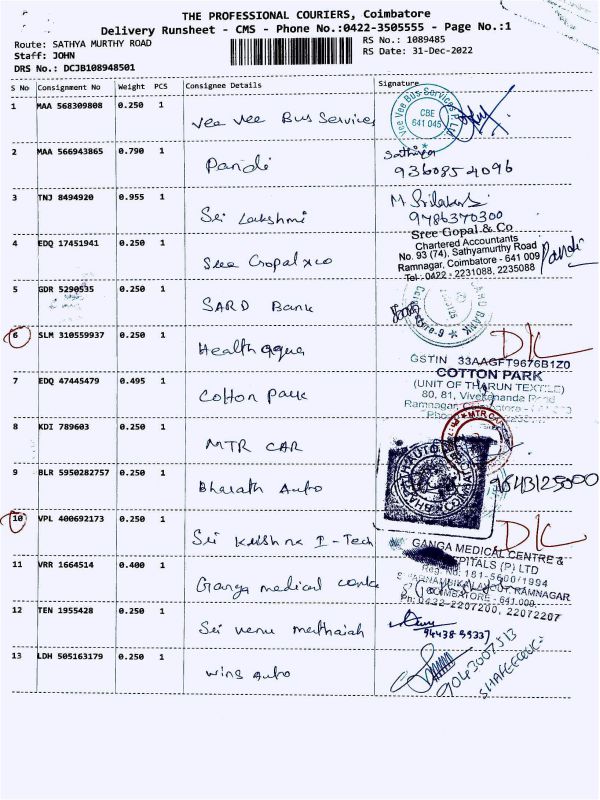 THE PROFESSIONAL COURIERS, Coimbatore
Delivery Runsheet - CMS - Phone No.:0422-3505555 - Page No.:1
Route: SATHYA MURTHY ROAD
RS No.: 1089485
Staff: JOHN
RS Date: 31-Dec-2022
DRS No.: DCJB108948501
S No Consignment No Weight PCS Consignee Details Signature
1 MAA 568309808 0.250 1 Vee Vee Bus Services
Vee Vee Bus Services P Ltd
CBE
641 045
2 MAA 566943865 0.790 1 Pandi
Sathiya
9360854096
3 TNJ 8494920 0.955 1 Sri Lakshmi
9786370300
4 EDQ 17451941 0.250 1 Sree Gopal & co
Sree Gopal & Co
Chartered Accountants
No. 93 (74), Sathyamurthy Road
Ramnagar, Coimbatore - 641 009
Tel : 0422 - 2231088, 2235088
Pandi
5 GDR 5290535 0.250 1 SARD Bank
6 SLM 310559937 0.250 1 Health aqua
D/L
7 EDQ 47445479 0.495 1 Cotton Park
GSTIN 33AAGFT9676B1Z0
COTTON PARK
(UNIT OF THARUN TEXTILE)
80, 81, Vivekananda Road
Ramnagar, Coimbatore
8 KDI 789603 0.250 1 MTR CAR
MTR CAR
9 BLR 5950282757 0.250 1 Bharath Auto
10 VPL 400692173 0.250 1 Sri Krishna I-Tech
D/L
11 VRR 1664514 0.400 1 Ganga medical
GANGA MEDICAL CENTRE &
HOSPITALS (P) LTD
COIMBATORE - 641 009
Ph: 0422-2207200, 22072207
12 TEN 1955428 0.250 1 Sri venu
13 LDH 505163179 0.250 1 wins Auto
9043007513